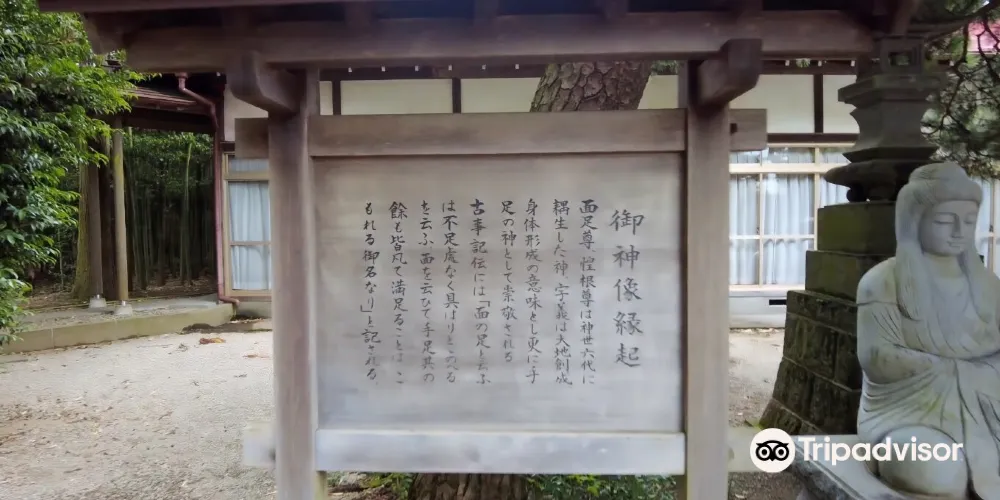 御神像縁起
面足尊、惶根尊は神世六代に
耦生した神、字義は天地創成
身体形成の意味とし更に手
足の神として崇敬される
古事記伝には「面の足と云ふ
は不足處なく具はりとゝのへる
を云ふ、面を云ひて手足其の
餘も皆凡て満足ることは、こ
もれる御名なり」と記される。
Tripadvisor